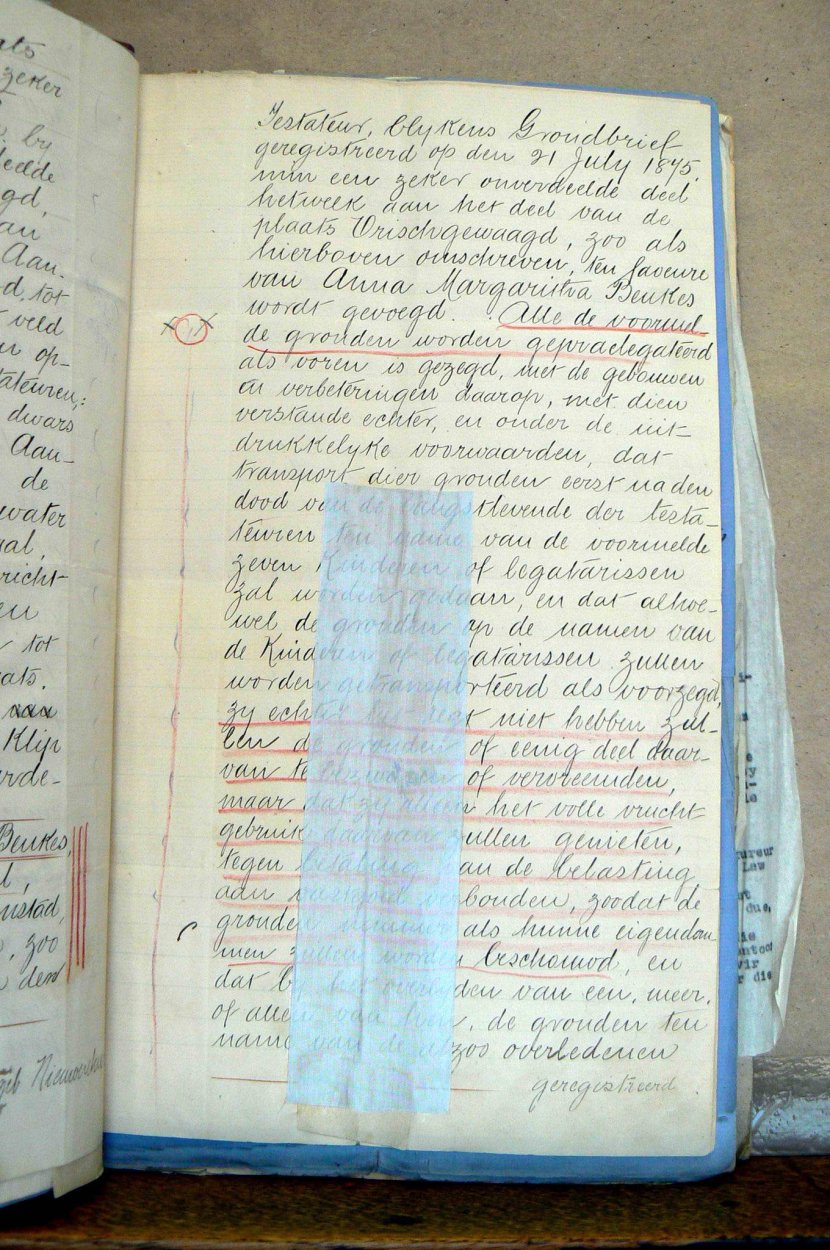 Testateur, blykens Grondbrief
geregistreerd op den 21 July 1875.
min een zeker onverdeelde deel
hetwelk aan het deel van de
plaats Vrischgewaagd, zoo als
hierboven omschreven, ten faveure
van Anna Margaritha Beukes
wordt gevoegd. Alle de voormel-
de gronden worden gepraelegateerd
als voren is gezegd, met de gebouwen
en verbeteringen daarop, met dien
verstande echter, en onder de uit-
drukkelyke voorwaarden, dat
transport dier gronden eerst na den
dood van de langstlevende der testa-
teuren ten name van de voormelde
zeven Kinderen of legatarissen
zal worden gedaan, en dat alhoe-
wel de gronden op de namen van
de Kinderen of legatarissen zullen
worden getransporteerd als voorzegd,
zy echter het regt niet hebben zul-
len de gronden of eenig deel daar-
van te bezwaren of vervreemden,
maar dat zy alleen het volle vrucht
gebruik daarvan zullen genieten,
tegen betaling van de belasting
aan vastgoed verbonden, zoodat de
gronden nimmer als hunne eigendom
men zullen worden beschouwd, en
dat by het overlyden van een, meer,
of allen van hen, de gronden ten
name van de alzoo overledenen
geregistreerd
ats
zeker
by
gd,
Aan.
d, tot
veld
en op-
tateuren,:
dwars
Aan-
de
water
al,
richt-
en
tot
ats.
Klip
arde-
Beukes,
nstad,
, zoo
den
geb
ureur
Law
due,
die